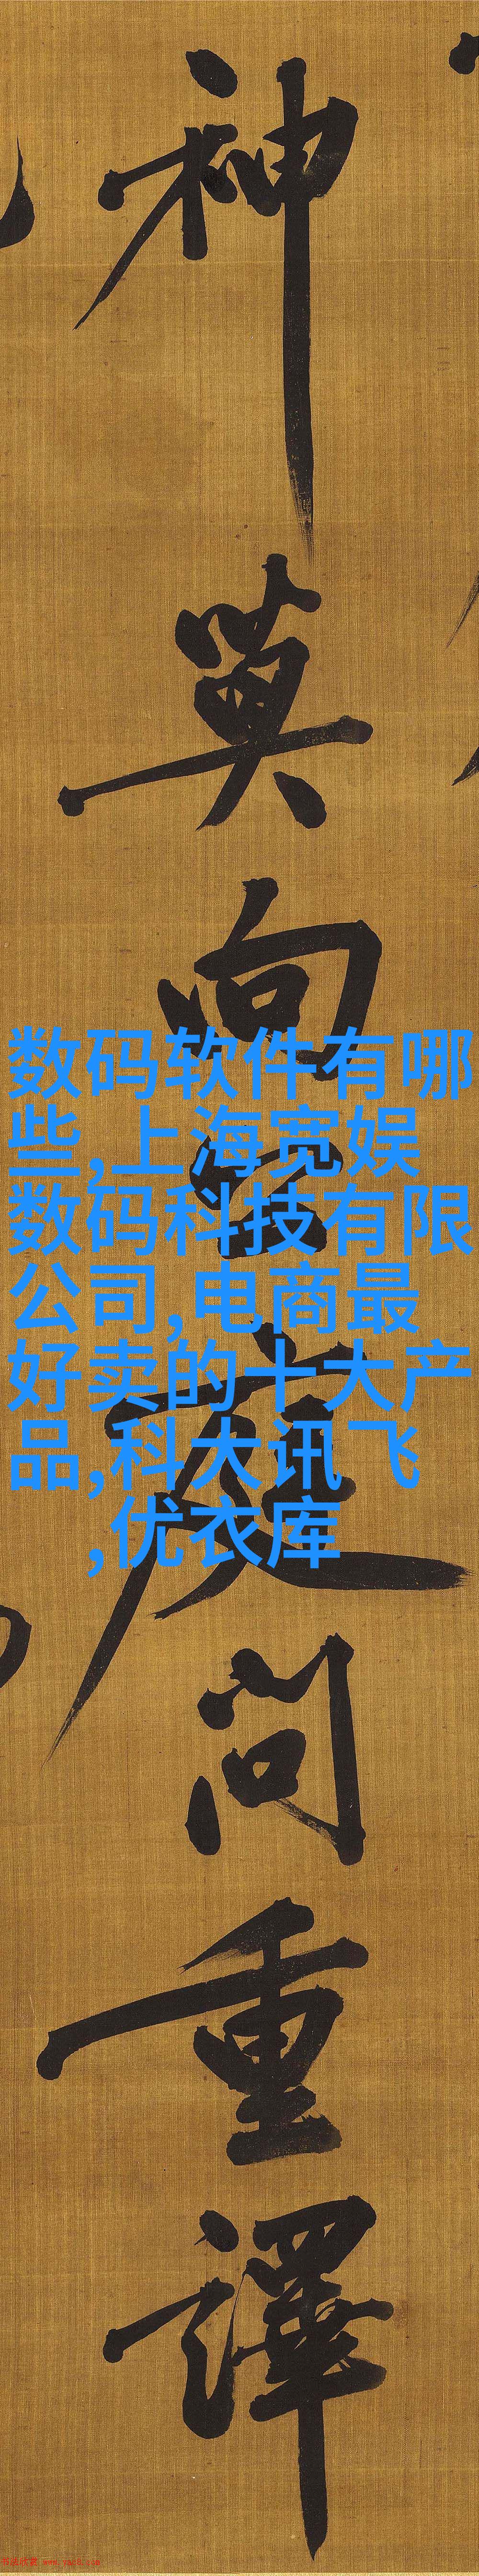 神
英
向
文
问
重
譯
数码软件有哪
些,上海宽娱
数码科技有限
公司,电商最
好卖的十大产
品,科大讯飞
,优衣库